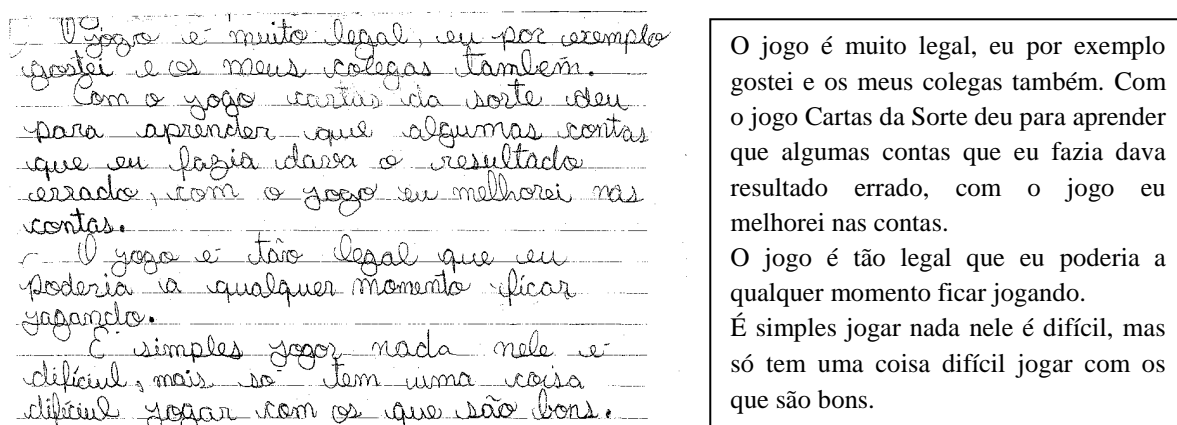 O jogo é muito legal, eu por exemplo
gostei e os meus colegas tambem.
Com o jogo cartas da sorte deu
para aprender que algumas contas
que eu fazia dava o resultado
errado, com o jogo eu melhorei nas
contas.
O jogo é tão legal que eu
poderia a qualquer momento ficar
jagando.
É simples jogor nada nele é
difíciul, mais so tem uma coisa
difíciul jogar com os que são bons.
O jogo é muito legal, eu por exemplo
gostei e os meus colegas também. Com
o jogo Cartas da Sorte deu para aprender
que algumas contas que eu fazia dava
resultado errado, com o jogo eu
melhorei nas contas.
O jogo é tão legal que eu poderia a
qualquer momento ficar jogando.
É simples jogar nada nele é difícil, mas
só tem uma coisa difícil jogar com os
que são bons.